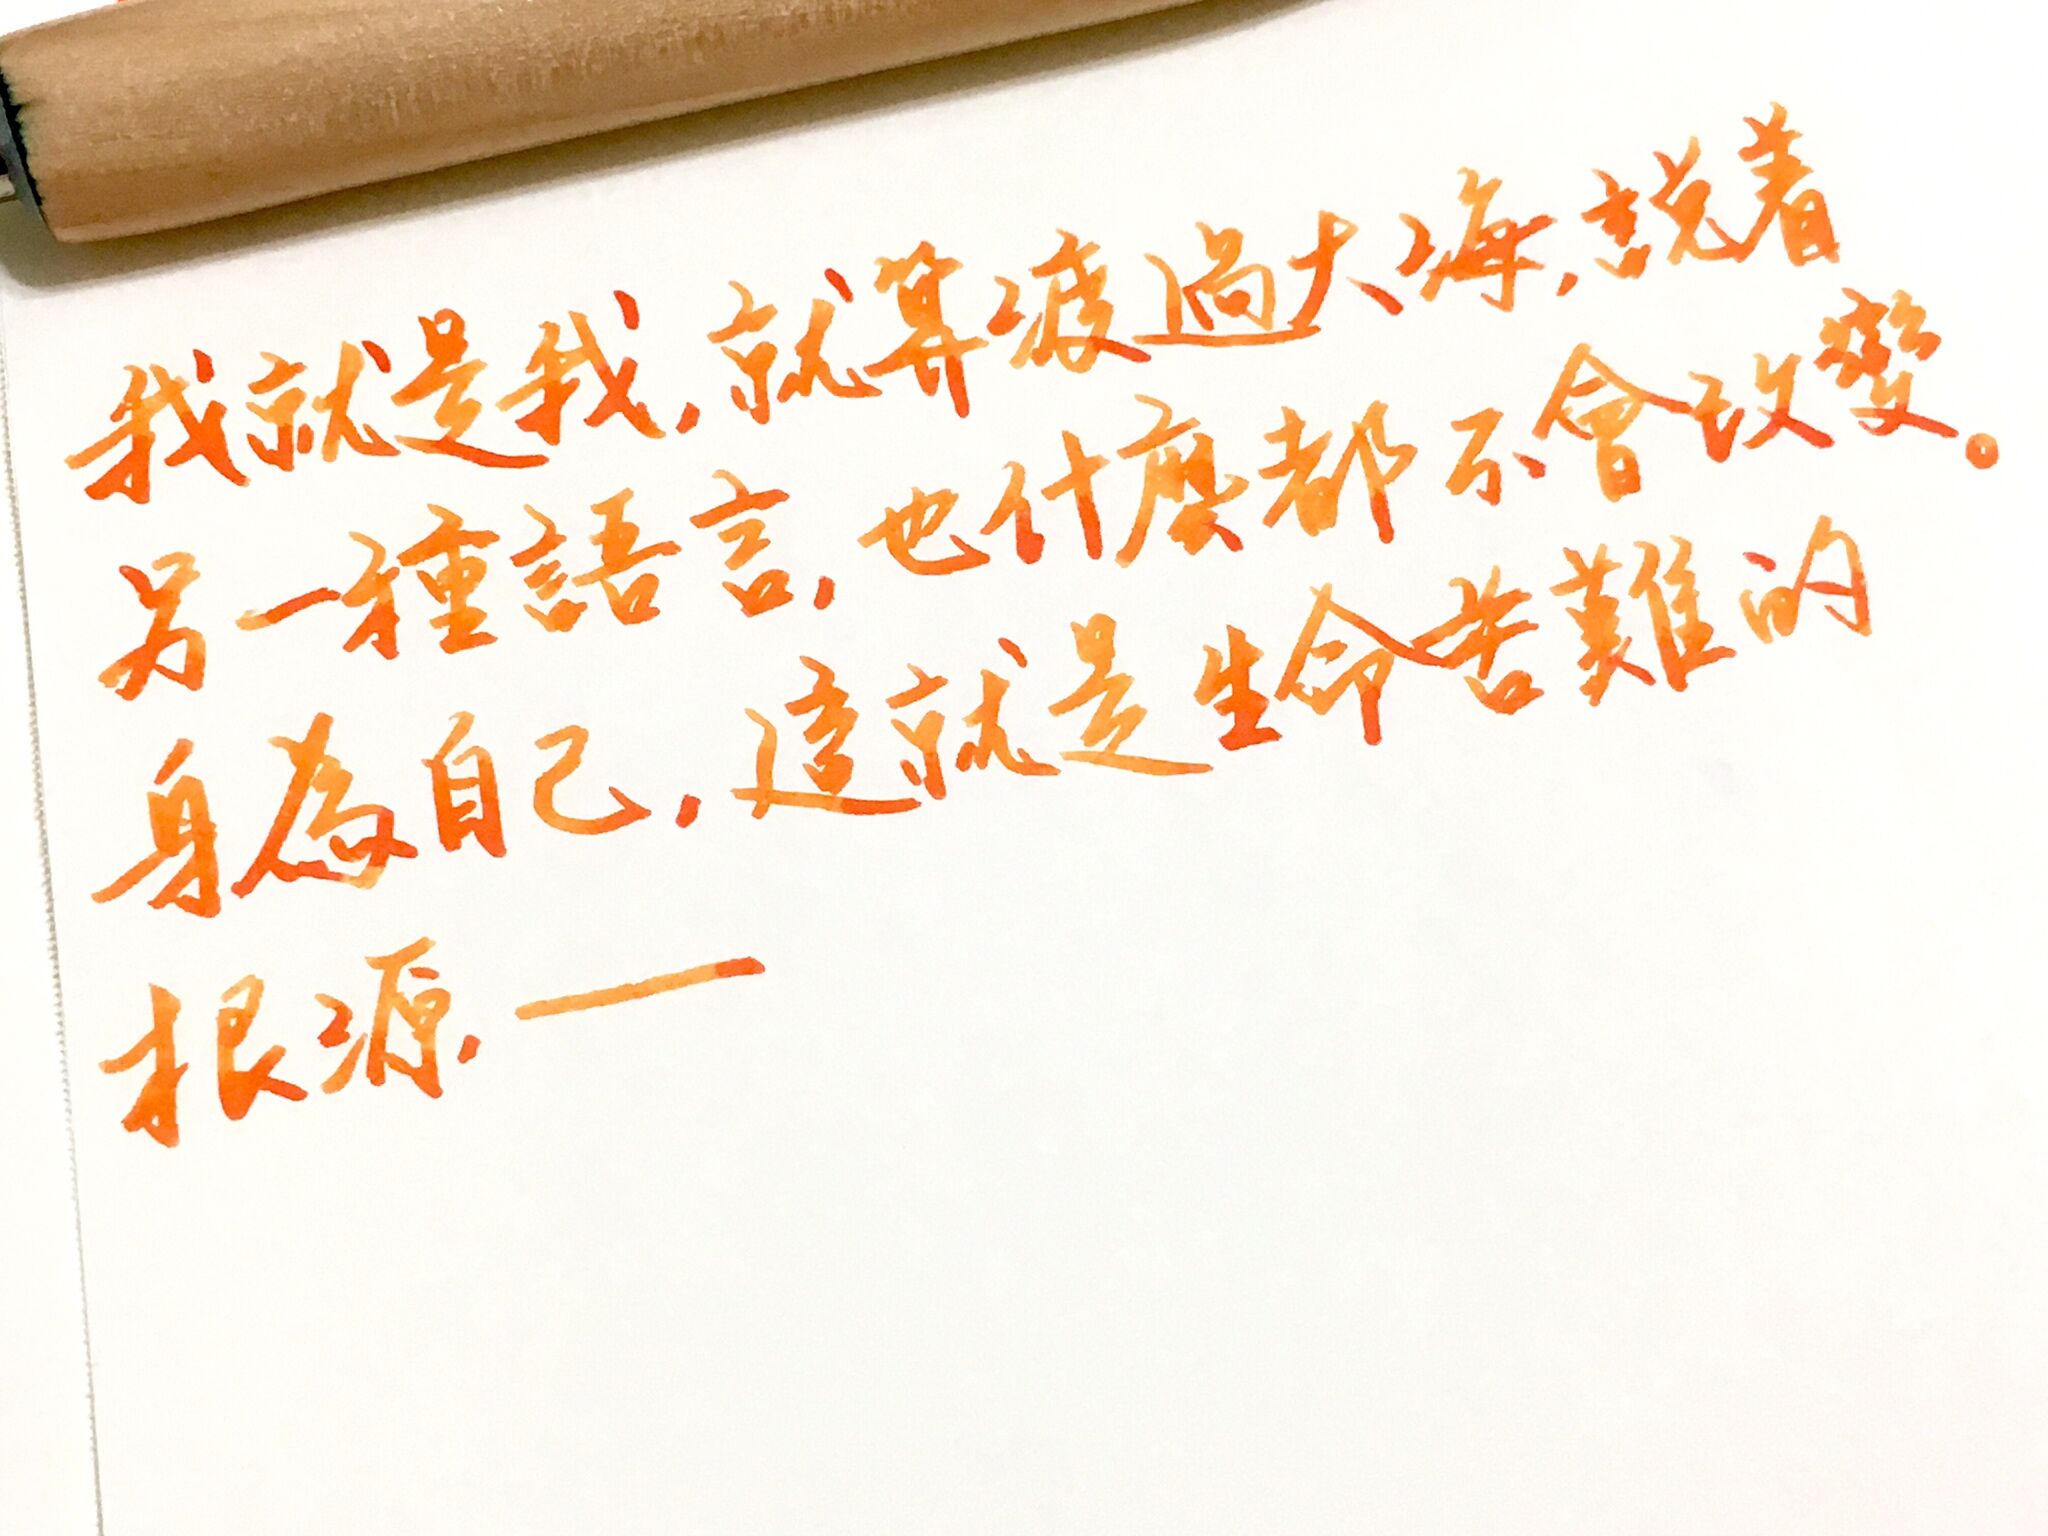 我就是我，就算渡過大海，說着
另一種語言，也什麼都不會改變。
身為自己，這就是生命苦難的
根源，——